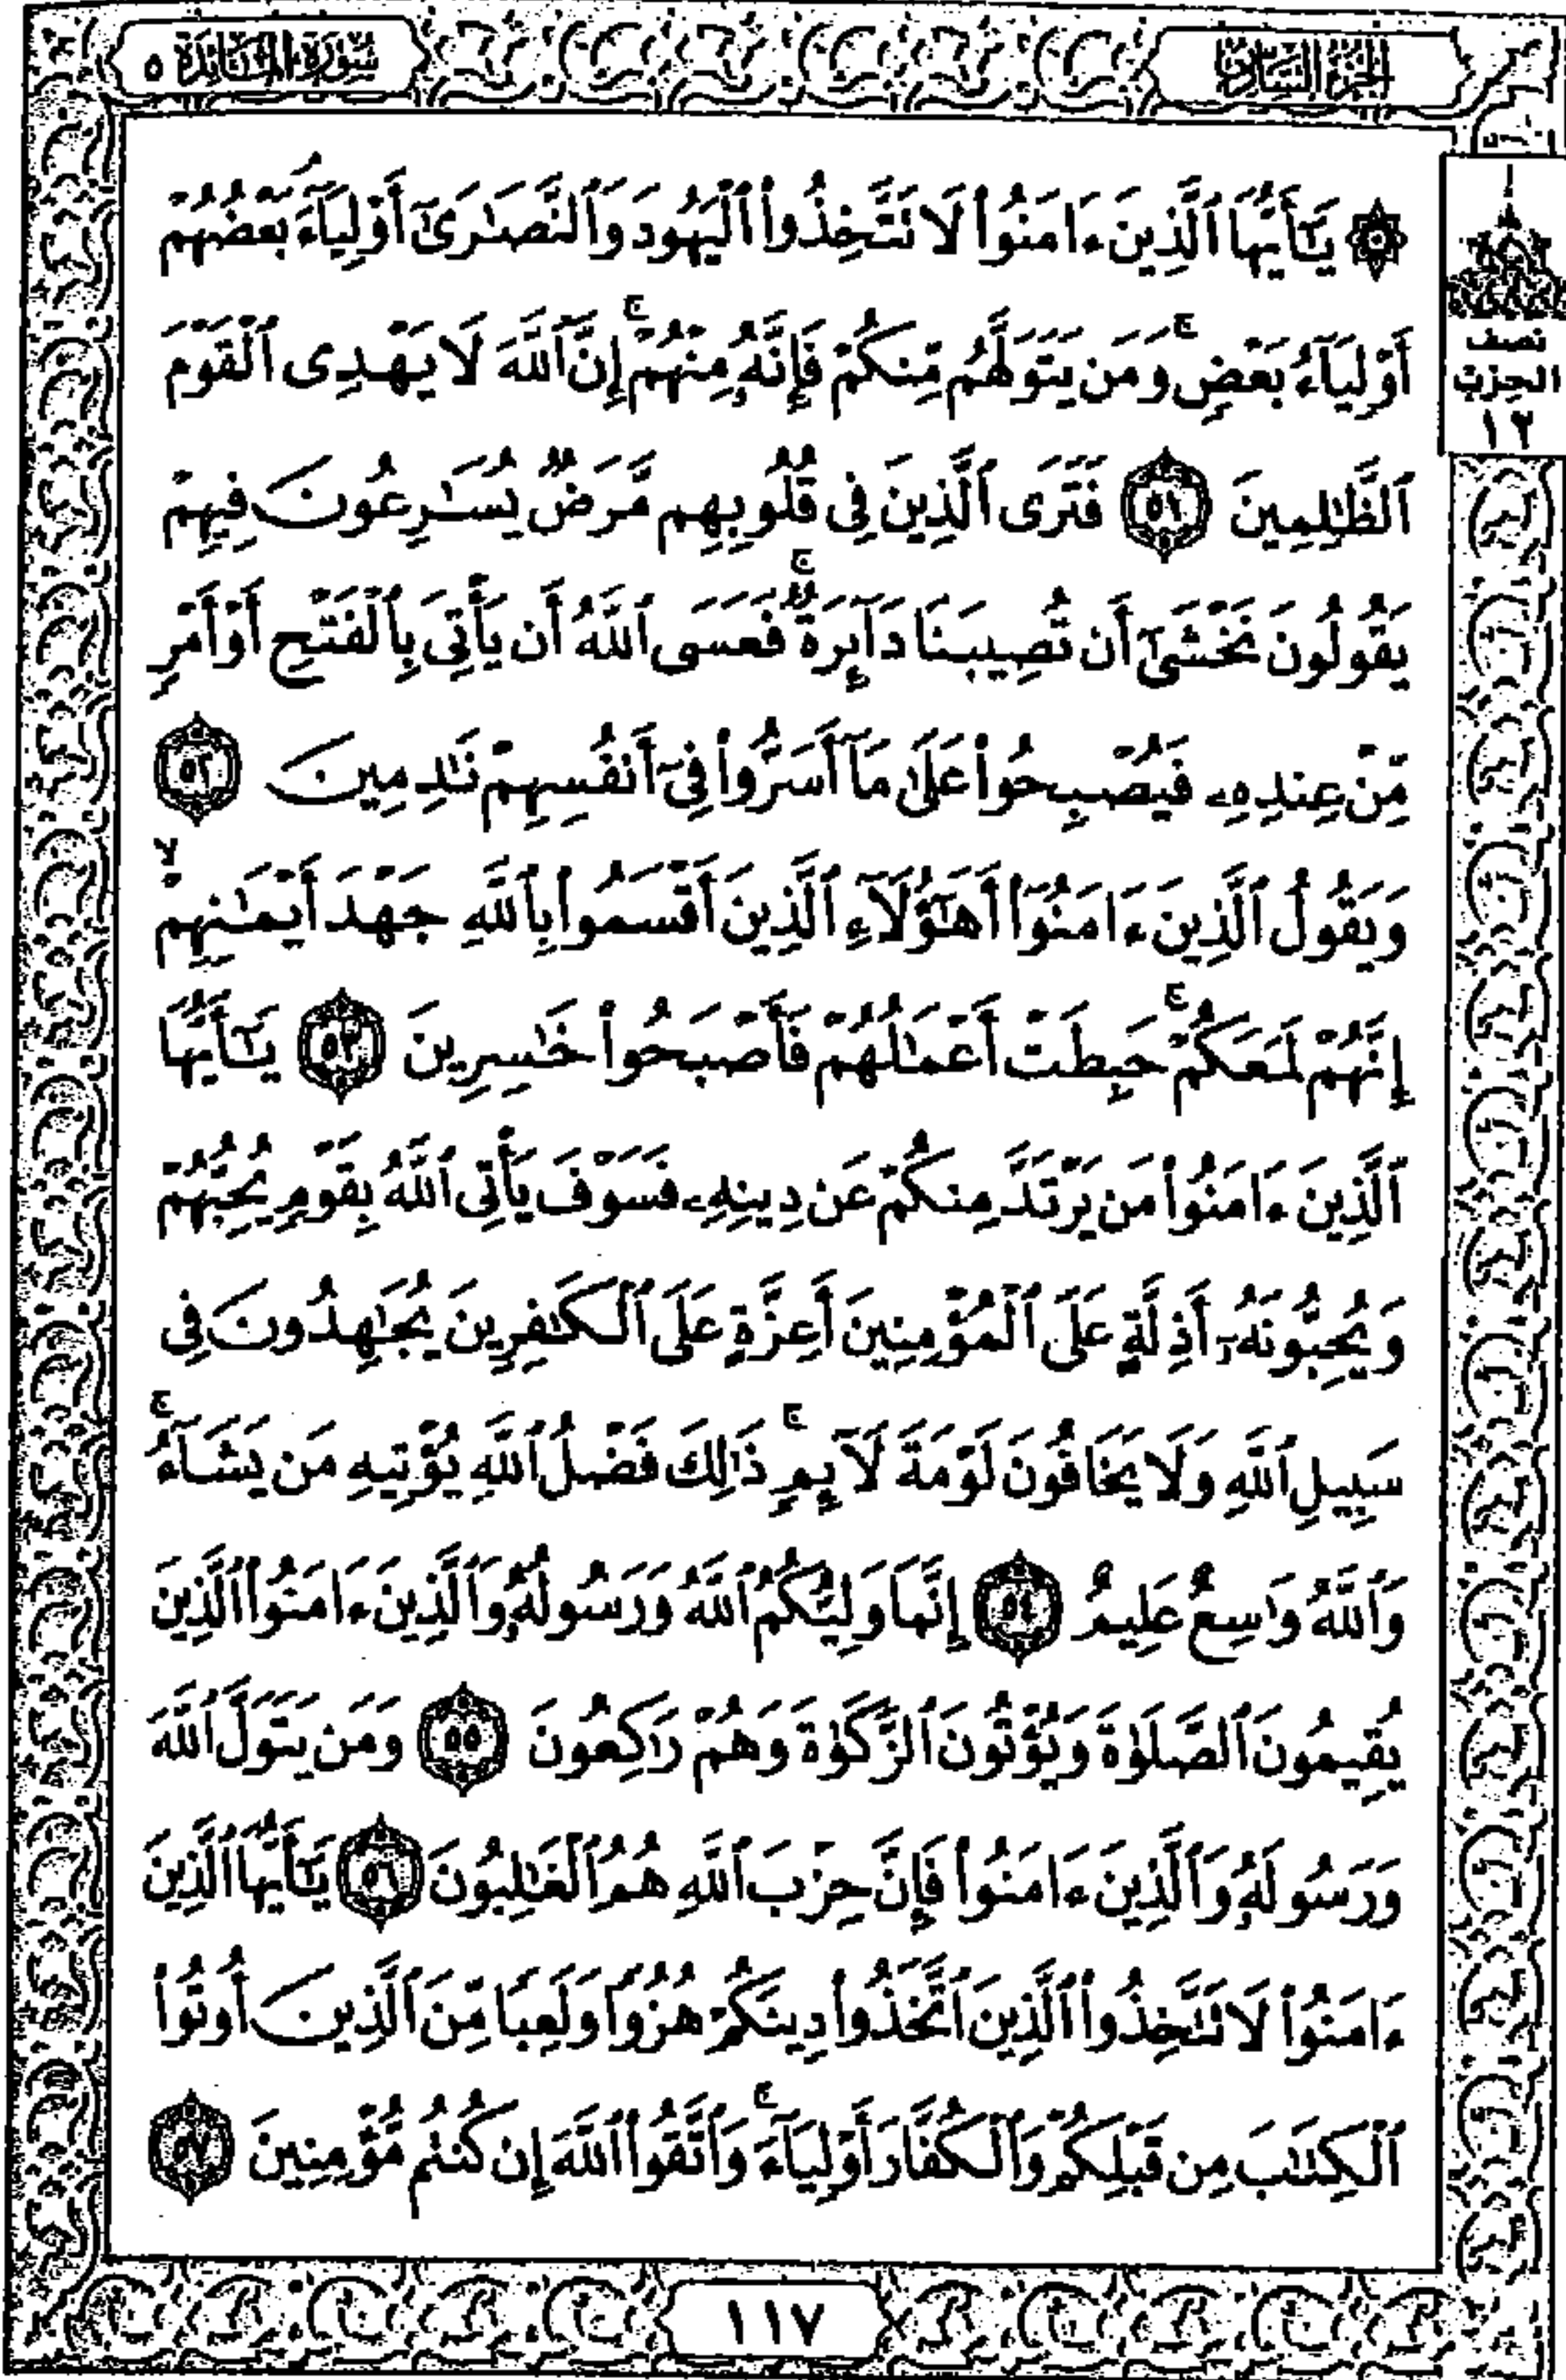 الجزء السادس
سورة المائدة ٥
نصف
الحزب
١٢
۞ يَٰٓأَيُّهَا ٱلَّذِينَ ءَامَنُوا۟ لَا تَتَّخِذُوا۟ ٱلْيَهُودَ وَٱلنَّصَٰرَىٰٓ أَوْلِيَآءَ بَعْضُهُمْ
أَوْلِيَآءُ بَعْضٍ ۚ وَمَن يَتَوَلَّهُم مِّنكُمْ فَإِنَّهُۥ مِنْهُمْ ۗ إِنَّ ٱللَّهَ لَا يَهْدِى ٱلْقَوْمَ
ٱلظَّٰلِمِينَ ٥١ فَتَرَى ٱلَّذِينَ فِى قُلُوبِهِم مَّرَضٌ يُسَٰرِعُونَ فِيهِمْ
يَقُولُونَ نَخْشَىٰٓ أَن تُصِيبَنَا دَآئِرَةٌ ۚ فَعَسَى ٱللَّهُ أَن يَأْتِىَ بِٱلْفَتْحِ أَوْ أَمْرٍ
مِّنْ عِندِهِۦ فَيُصْبِحُوا۟ عَلَىٰ مَآ أَسَرُّوا۟ فِىٓ أَنفُسِهِمْ نَٰدِمِينَ ٥٢
وَيَقُولُ ٱلَّذِينَ ءَامَنُوٓا۟ أَهَٰٓؤُلَآءِ ٱلَّذِينَ أَقْسَمُوا۟ بِٱللَّهِ جَهْدَ أَيْمَٰنِهِمْ ۙ
إِنَّهُمْ لَمَعَكُمْ ۚ حَبِطَتْ أَعْمَٰلُهُمْ فَأَصْبَحُوا۟ خَٰسِرِينَ ٥٣ يَٰٓأَيُّهَا
ٱلَّذِينَ ءَامَنُوا۟ مَن يَرْتَدَّ مِنكُمْ عَن دِينِهِۦ فَسَوْفَ يَأْتِى ٱللَّهُ بِقَوْمٍ يُحِبُّهُمْ
وَيُحِبُّونَهُۥٓ أَذِلَّةٍ عَلَى ٱلْمُؤْمِنِينَ أَعِزَّةٍ عَلَى ٱلْكَٰفِرِينَ يُجَٰهِدُونَ فِى
سَبِيلِ ٱللَّهِ وَلَا يَخَافُونَ لَوْمَةَ لَآئِمٍ ۚ ذَٰلِكَ فَضْلُ ٱللَّهِ يُؤْتِيهِ مَن يَشَآءُ ۚ
وَٱللَّهُ وَٰسِعٌ عَلِيمٌ ٥٤ إِنَّمَا وَلِيُّكُمُ ٱللَّهُ وَرَسُولُهُۥ وَٱلَّذِينَ ءَامَنُوا۟ ٱلَّذِينَ
يُقِيمُونَ ٱلصَّلَوٰةَ وَيُؤْتُونَ ٱلزَّكَوٰةَ وَهُمْ رَٰكِعُونَ ٥٥ وَمَن يَتَوَلَّ ٱللَّهَ
وَرَسُولَهُۥ وَٱلَّذِينَ ءَامَنُوا۟ فَإِنَّ حِزْبَ ٱللَّهِ هُمُ ٱلْغَٰلِبُونَ ٥٦ يَٰٓأَيُّهَا ٱلَّذِينَ
ءَامَنُوا۟ لَا تَتَّخِذُوا۟ ٱلَّذِينَ ٱتَّخَذُوا۟ دِينَكُمْ هُزُوًا وَلَعِبًا مِّنَ ٱلَّذِينَ أُوتُوا۟
ٱلْكِتَٰبَ مِن قَبْلِكُمْ وَٱلْكُفَّارَ أَوْلِيَآءَ ۚ وَٱتَّقُوا۟ ٱللَّهَ إِن كُنتُم مُّؤْمِنِينَ ٥٧
١١٧